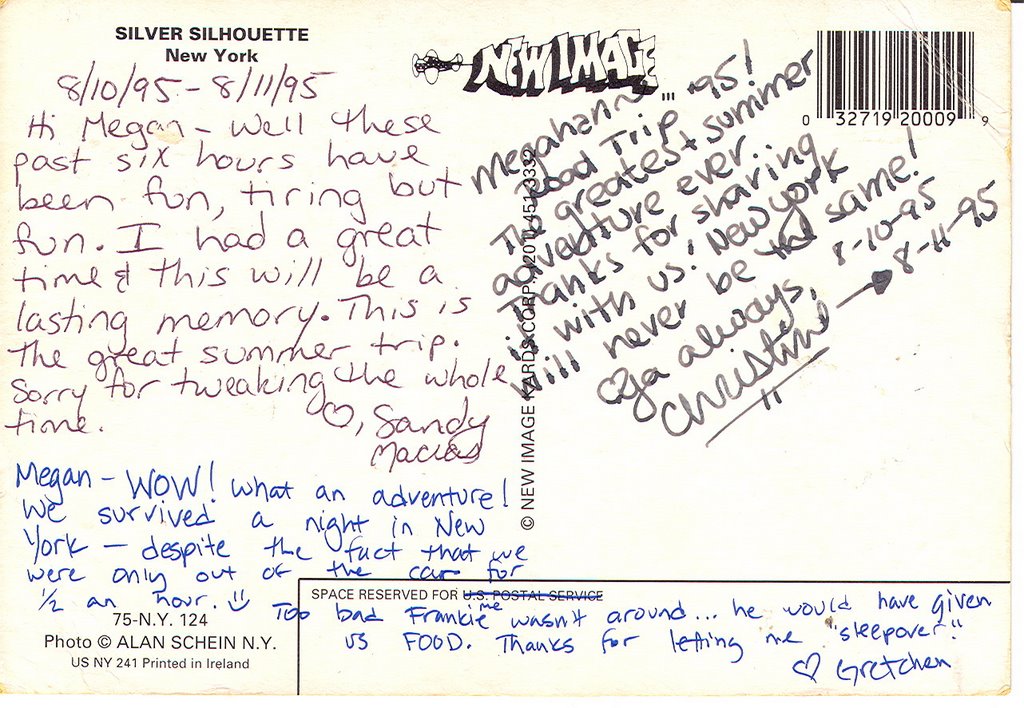 SILVER SILHOUETTE
New York
8/10/95 - 8/11/95
Hi Megan - Well these
past six hours have
been fun, tiring but
fun. I had a great
time & this will be a
lasting memory. This is
the great summer trip.
Sorry for tweaking the whole
time.
♡, Sandy
Macias
Megan - WOW! What an adventure!
We survived a night in New
York - despite the fact that we
were only out of the car for
1/2 an hour. Too bad Frankie wasn't around... he would have given
me
US FOOD. Thanks for letting me "sleepover."
♡ Gretchen
NEW IMAGE
0 32719 20009 9
Meghan~
The Road Trip '95!
The greatest summer
adventure ever.
Thanks for sharing
it with us! New York
will never be the same!
8-10-95
8-11-95
♡ Ya always,
Christine
© NEW IMAGE KARDS CORP. (201) 451-3332
SPACE RESERVED FOR U.S. POSTAL SERVICE
75-N.Y. 124
Photo © ALAN SCHEIN N.Y.
US NY 241 Printed in Ireland